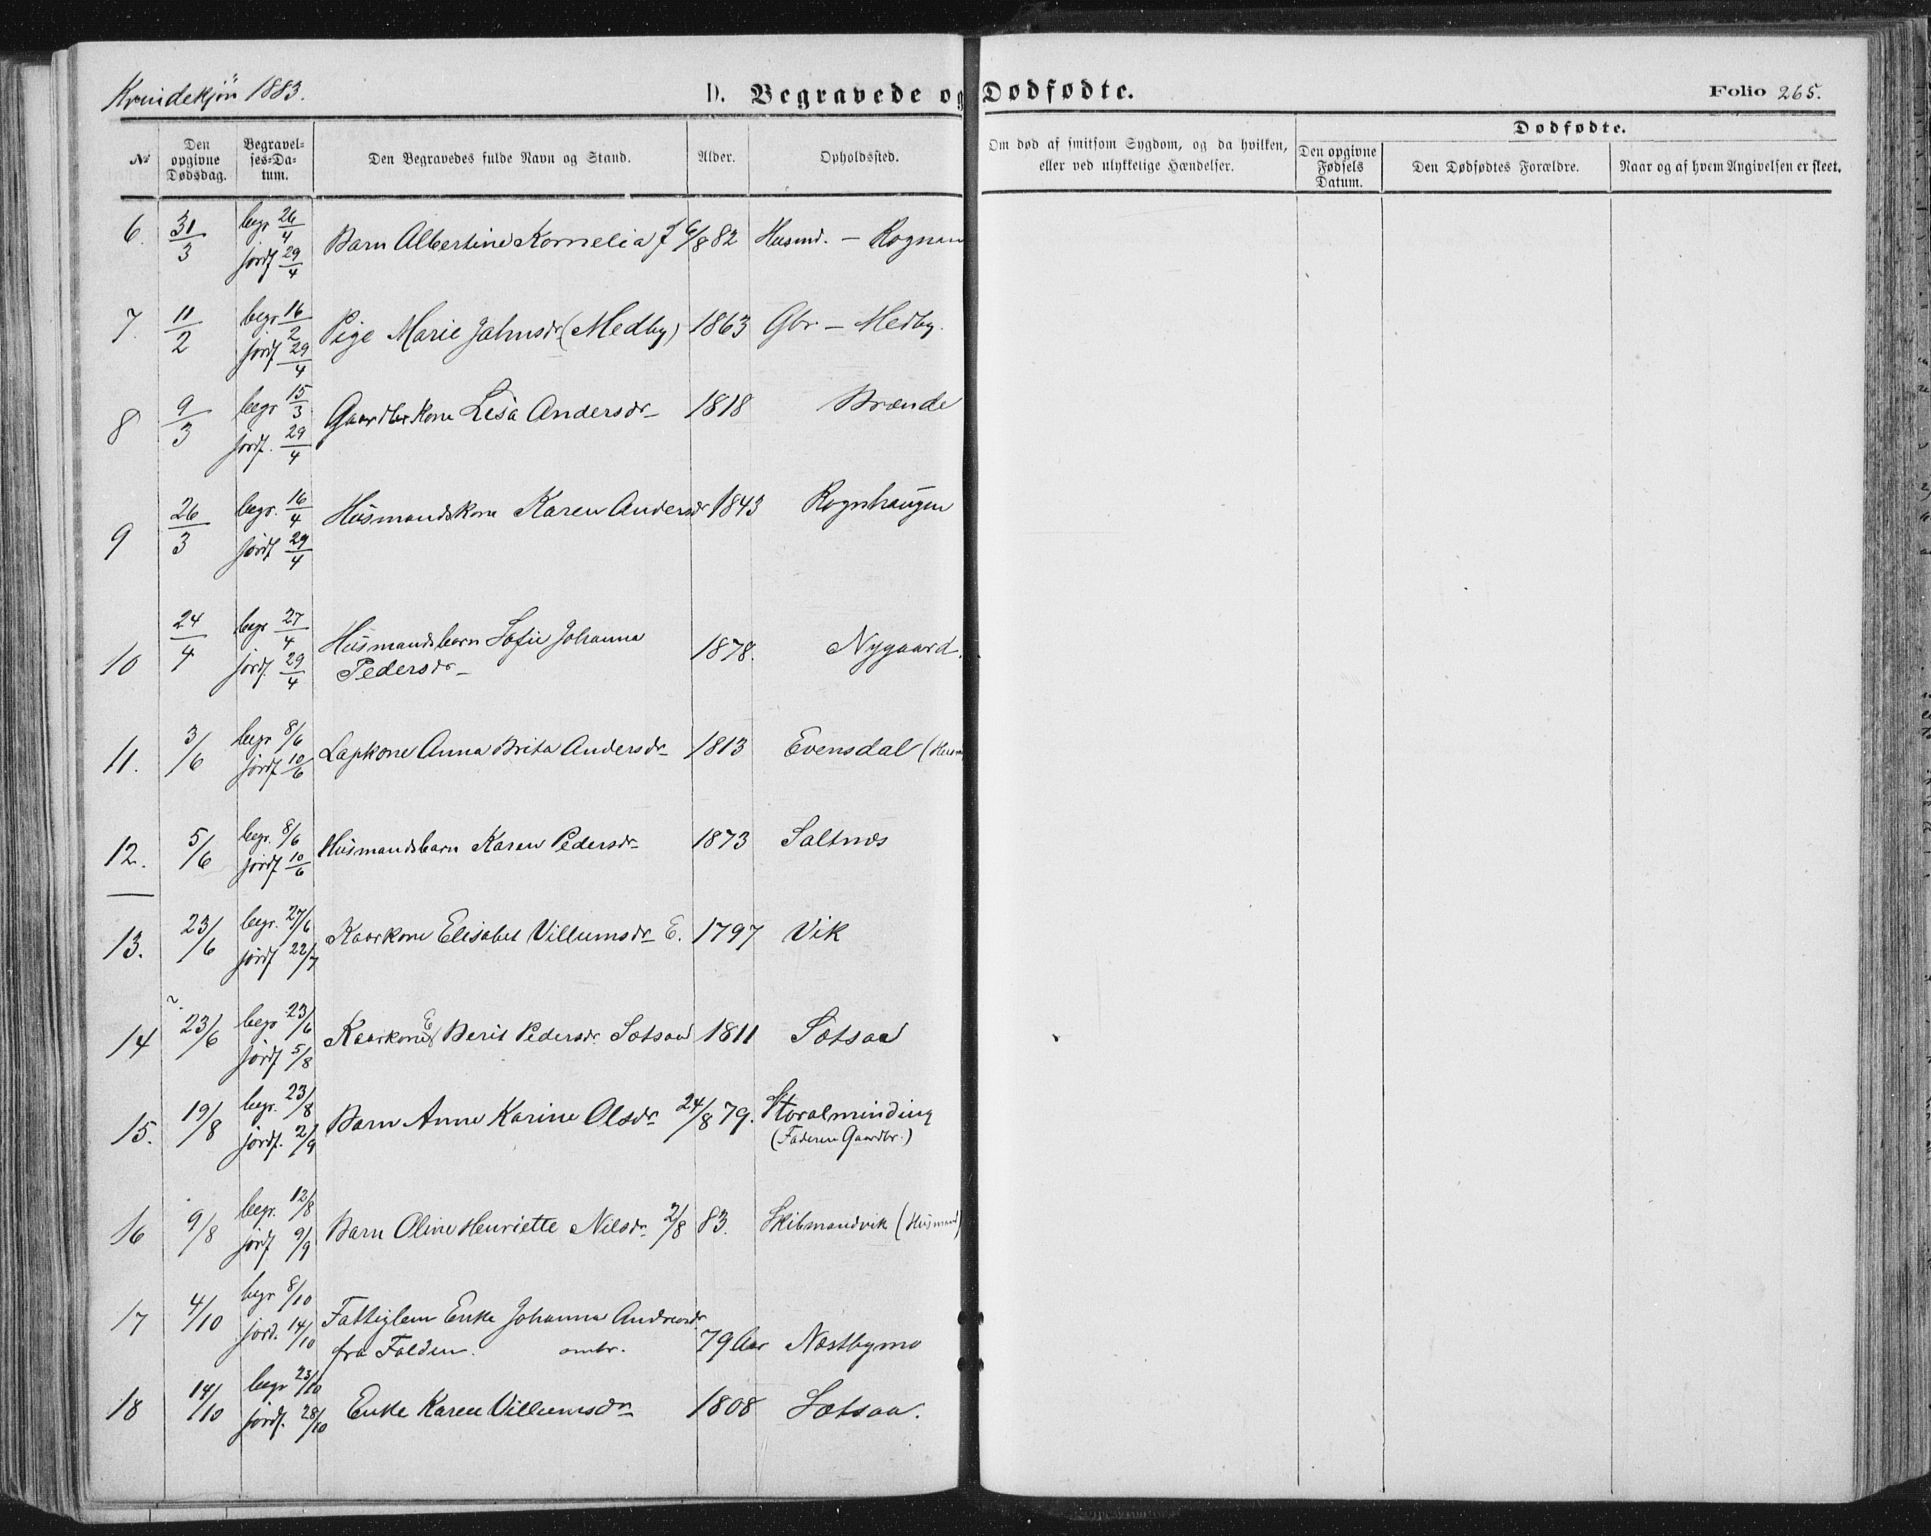 Kvindekjön 1883.
D. Begravede og Dødfødte.
Folio 265.
№
Den opgivne Dødsdag.
Begravelses-Datum.
Den Begravedes fulde Navn og Stand.
Alder.
Opholdssted.
Om død af smitsom Sygdom, og da hvilken, eller ved ulykkelige Hændelser.
Dødfødte.
Den opgivne Fødsels Datum.
Den Dødfødtes Forældre.
Naar og af hvem Angivelsen er skeet.
6. 31/3 begr 26/4 jordf 29/4 Barn Albertine Kornelia f 6/8 82 Husmd. – Rognan
7. 11/2 begr 16/2 jordf 29/4 Pige Marie Jahnsdr (Medby) 1863 Gbr – Medby.
8 9/3 begr 15/3 jordf. 29/4 Gaardbrkone Lisa Andersdr 1818 Brænde
9 26/3 begr. 16/4 jordf 29/4 Husmandskone Karen Andersdr 1843 Rognhaugen
10 24/4 begr 27/4 jordf. 29/4 Husmandsbarn Sofie Johanna
Pedersdr 1878. Nygaard.
11. 3/6 begr 8/6 jordf 10/6 Lapkone Anna Brita Andersdr 1813 Evensdal (Husm
12. 5/6 begr. 8/6 jordf 10/6 Husmandsbarn Karen Pedersdr 1873 Saltnes
13. 23/6 begr. 27/6 jordf 22/7 Kaarkone Elisabet Villumsdr E. 1797 Vik
14 23/6 begr 23/6 jordf 5/8 Kaarkone E Berit Pedersdr Sætsaa 1811 Sætsaa
15. 19/8 begr. 23/8 jordf. 2/9 Barn Anne Karine Olsdr 24/8 79. Storalminding
(Faderen Gaardbr.)
16 9/8 begr. 12/8 jordf 9/9 Barn Oline Henriette Nilsdr 2/8 83. Skibmandvik (Husmand)
17 4/10 begr 8/10 jord. 14/10 Fattiglem Enke Johanna Andreasdr
fra Folden. omtr. 79 Aar Næstbymo
18 14/10 begr 23/10 jordf. 28/10 Enke Karen Villumsdr 1808 Sætsaa.